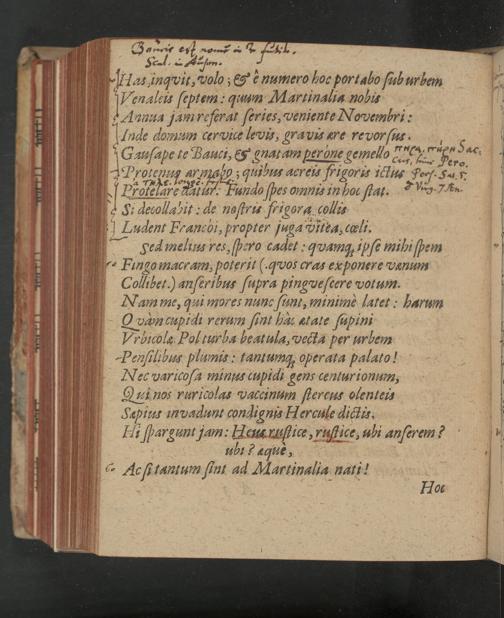 Has, inquit, volo; & è numero hoc portabo sub urbem
Venaleis septem: quum Martinalia nobis
Annua jam referat series, veniente Novembri:
Inde domum cervice levis, gravis ære revorsus.
Gausape te Bauci, & gnatam perone gemello
Protenus armabo; quibus acreis frigoris ictus
Protelare datur: Fundo spes omnis in hoc stat.
Si decollabit: de nostris frigora collis
Ludent Francôi, propter juga vitea, cœli.
Sed melius res, spero cadet: quamq; ipse mihi spem
Fingo macram, poterit (quos cras exponere vænum
Collibet) anseribus supra pinguescere votum.
Nam me, qui mores nunc sunt, minimè latet: harum
Quàm cupidi rerum sint hàc ætate supini
Vrbicolæ. Pol turba beatula, vecta per urbem
Pensilibus plumis: tantumq; operata palato!
Nec varicosa minus cupidi gens centurionum,
Qui nos ruricolas vaccinum stercus olenteis
Sæpius invadunt condignis Hercule dictis.
Hi spargunt jam: Heus rustice, rustice, ubi anserem?
ubi? æquè,
Ac si tantum sint ad Martinalia nati!
Hoc